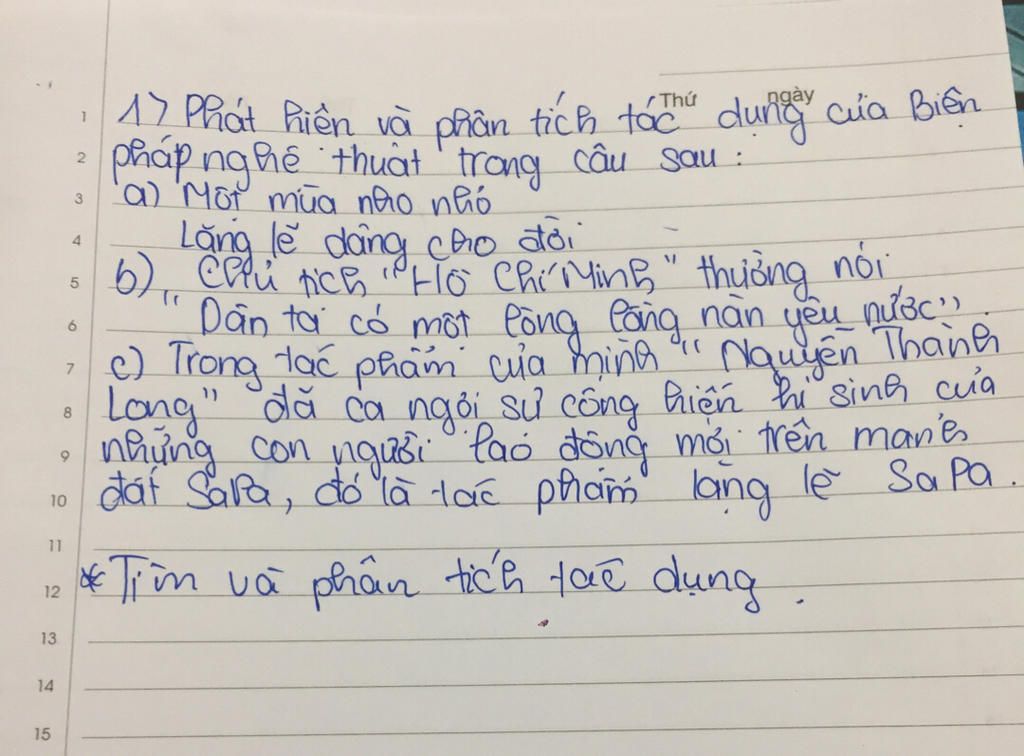 Thứ ngày
1) Phát hiện và phân tích tác dụng của Biện
pháp nghệ thuật trong câu sau:
a) Một mùa nho nhỏ
Lặng lẽ dâng cho đời
b) Chủ tịch "Hồ Chí Minh" thường nói
"Dân ta có một lòng lồng nàn yêu nước"
c) Trong tác phẩm của mình "Nguyễn Thành
Long" đã ca ngợi sự cống hiến hi sinh của
những con người lao động mới trên mảnh
đất SaPa, đó là tác phẩm lặng lẽ SaPa.
* Tìm và phân tích tác dụng.
1
2
3
4
5
6
7
8
9
10
11
12
13
14
15